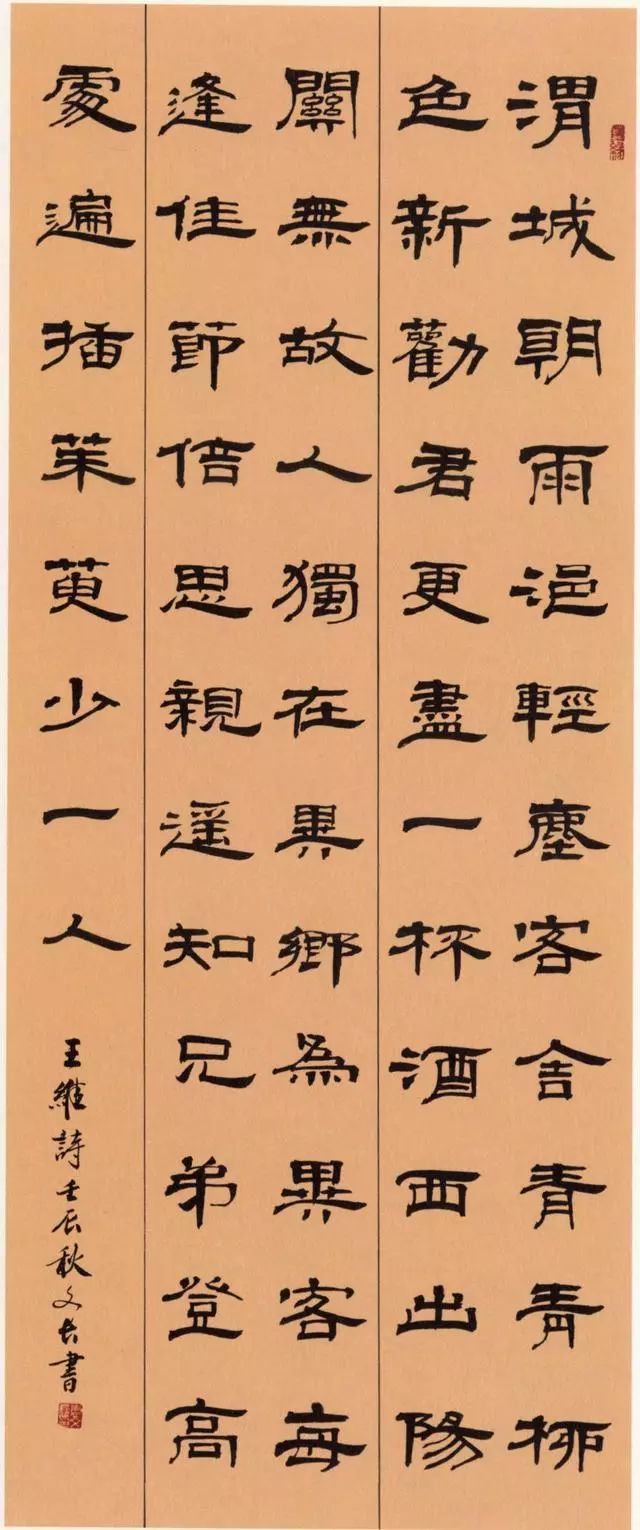 渭城朝雨浥輕塵客舍青青柳
色新勸君更盡一杯酒西出陽
關無故人獨在異鄉為異客每
逢佳節倍思親遥知兄弟登高
處遍插茱萸少一人
王維詩壬辰秋文長書